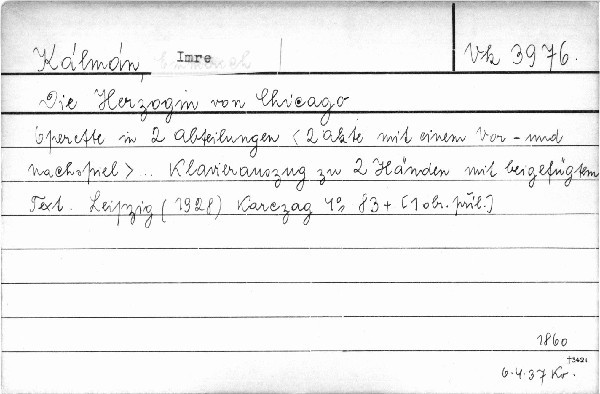 Kálmán, Imre Vk 3976.
Die Herzogin von Chicago
Operette in 2 Abteilungen <2 Akte mit einem Vor- und
Nachspiel> ... Klavierauszug zu 2 Händen mit beigefügtem
Text. Leipzig (1928) Karczag 4° 83 + [1 obr. příl.]
1860
†3421
6.4.37 Kr.